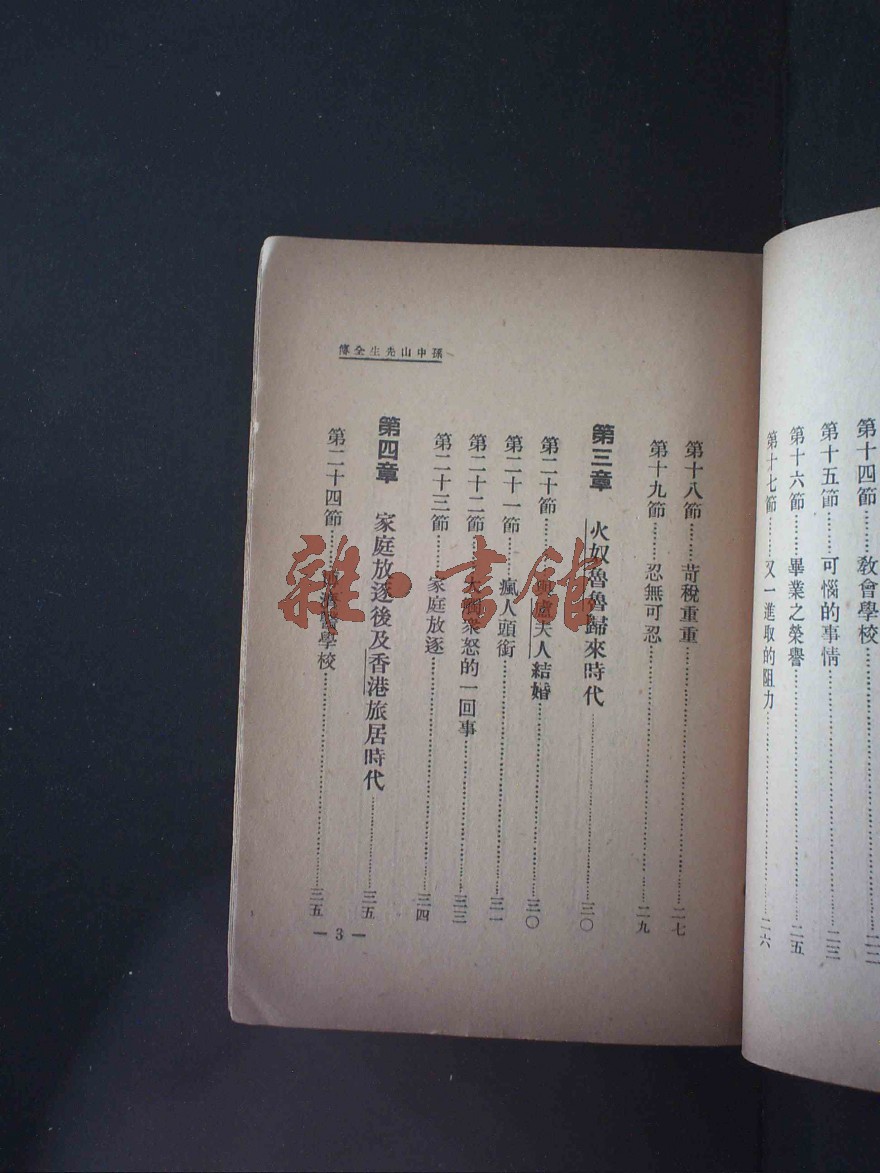 第十四節……教會學校……二二
第十五節……可惱的事情……二三
第十六節……畢業之榮譽……二五
第十七節……又一進取的阻力……二六
孫中山先生全傳
第十八節……苛稅重重……二七
第十九節……忍無可忍……二九
第三章 火奴魯魯歸來時代……三〇
第二十節……盧夫人結婚……三〇
第二十一節……瘋人頭銜……三一
第二十二節……大觸衆怒的一回事……三三
第二十三節……家庭放逐……三四
第四章 家庭放逐後及香港旅居時代……三五
第二十四節……學校……三五
— 3 —
雜·書館